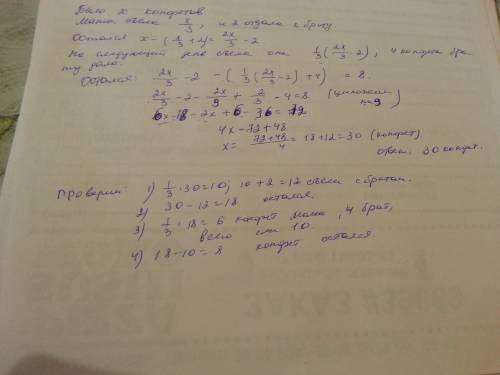 Было x конфетов
Маша съела x/3, и 2 отдала к брату
Остался x - (x/3 + 2) = 2x/3 - 2
На следующий день съела она 1/3 (2x/3 - 2), 4 конфета бра
ту дала.
Остался: 2x/3 - 2 - (1/3 (2x/3 - 2) + 4) = 8.
2x/3 - 2 - 2x/9 + 2/3 - 4 = 8 (умножаем на 9)
6x - 18 - 2x + 6 - 36 = 72
4x = 72 + 48
x = (72 + 48)/4 = 18 + 12 = 30 (конфет)
ответ: 30 конфет.
Проверим: 1) 1/3 · 30 = 10; 10 + 2 = 12 съела с братом.
2) 30 - 12 = 18 остался.
3) 1/3 · 18 = 6 конфет мама, 4 брат,
всего они 10.
4) 18 - 10 = 8 конфет остался.
ЗАКАЗ